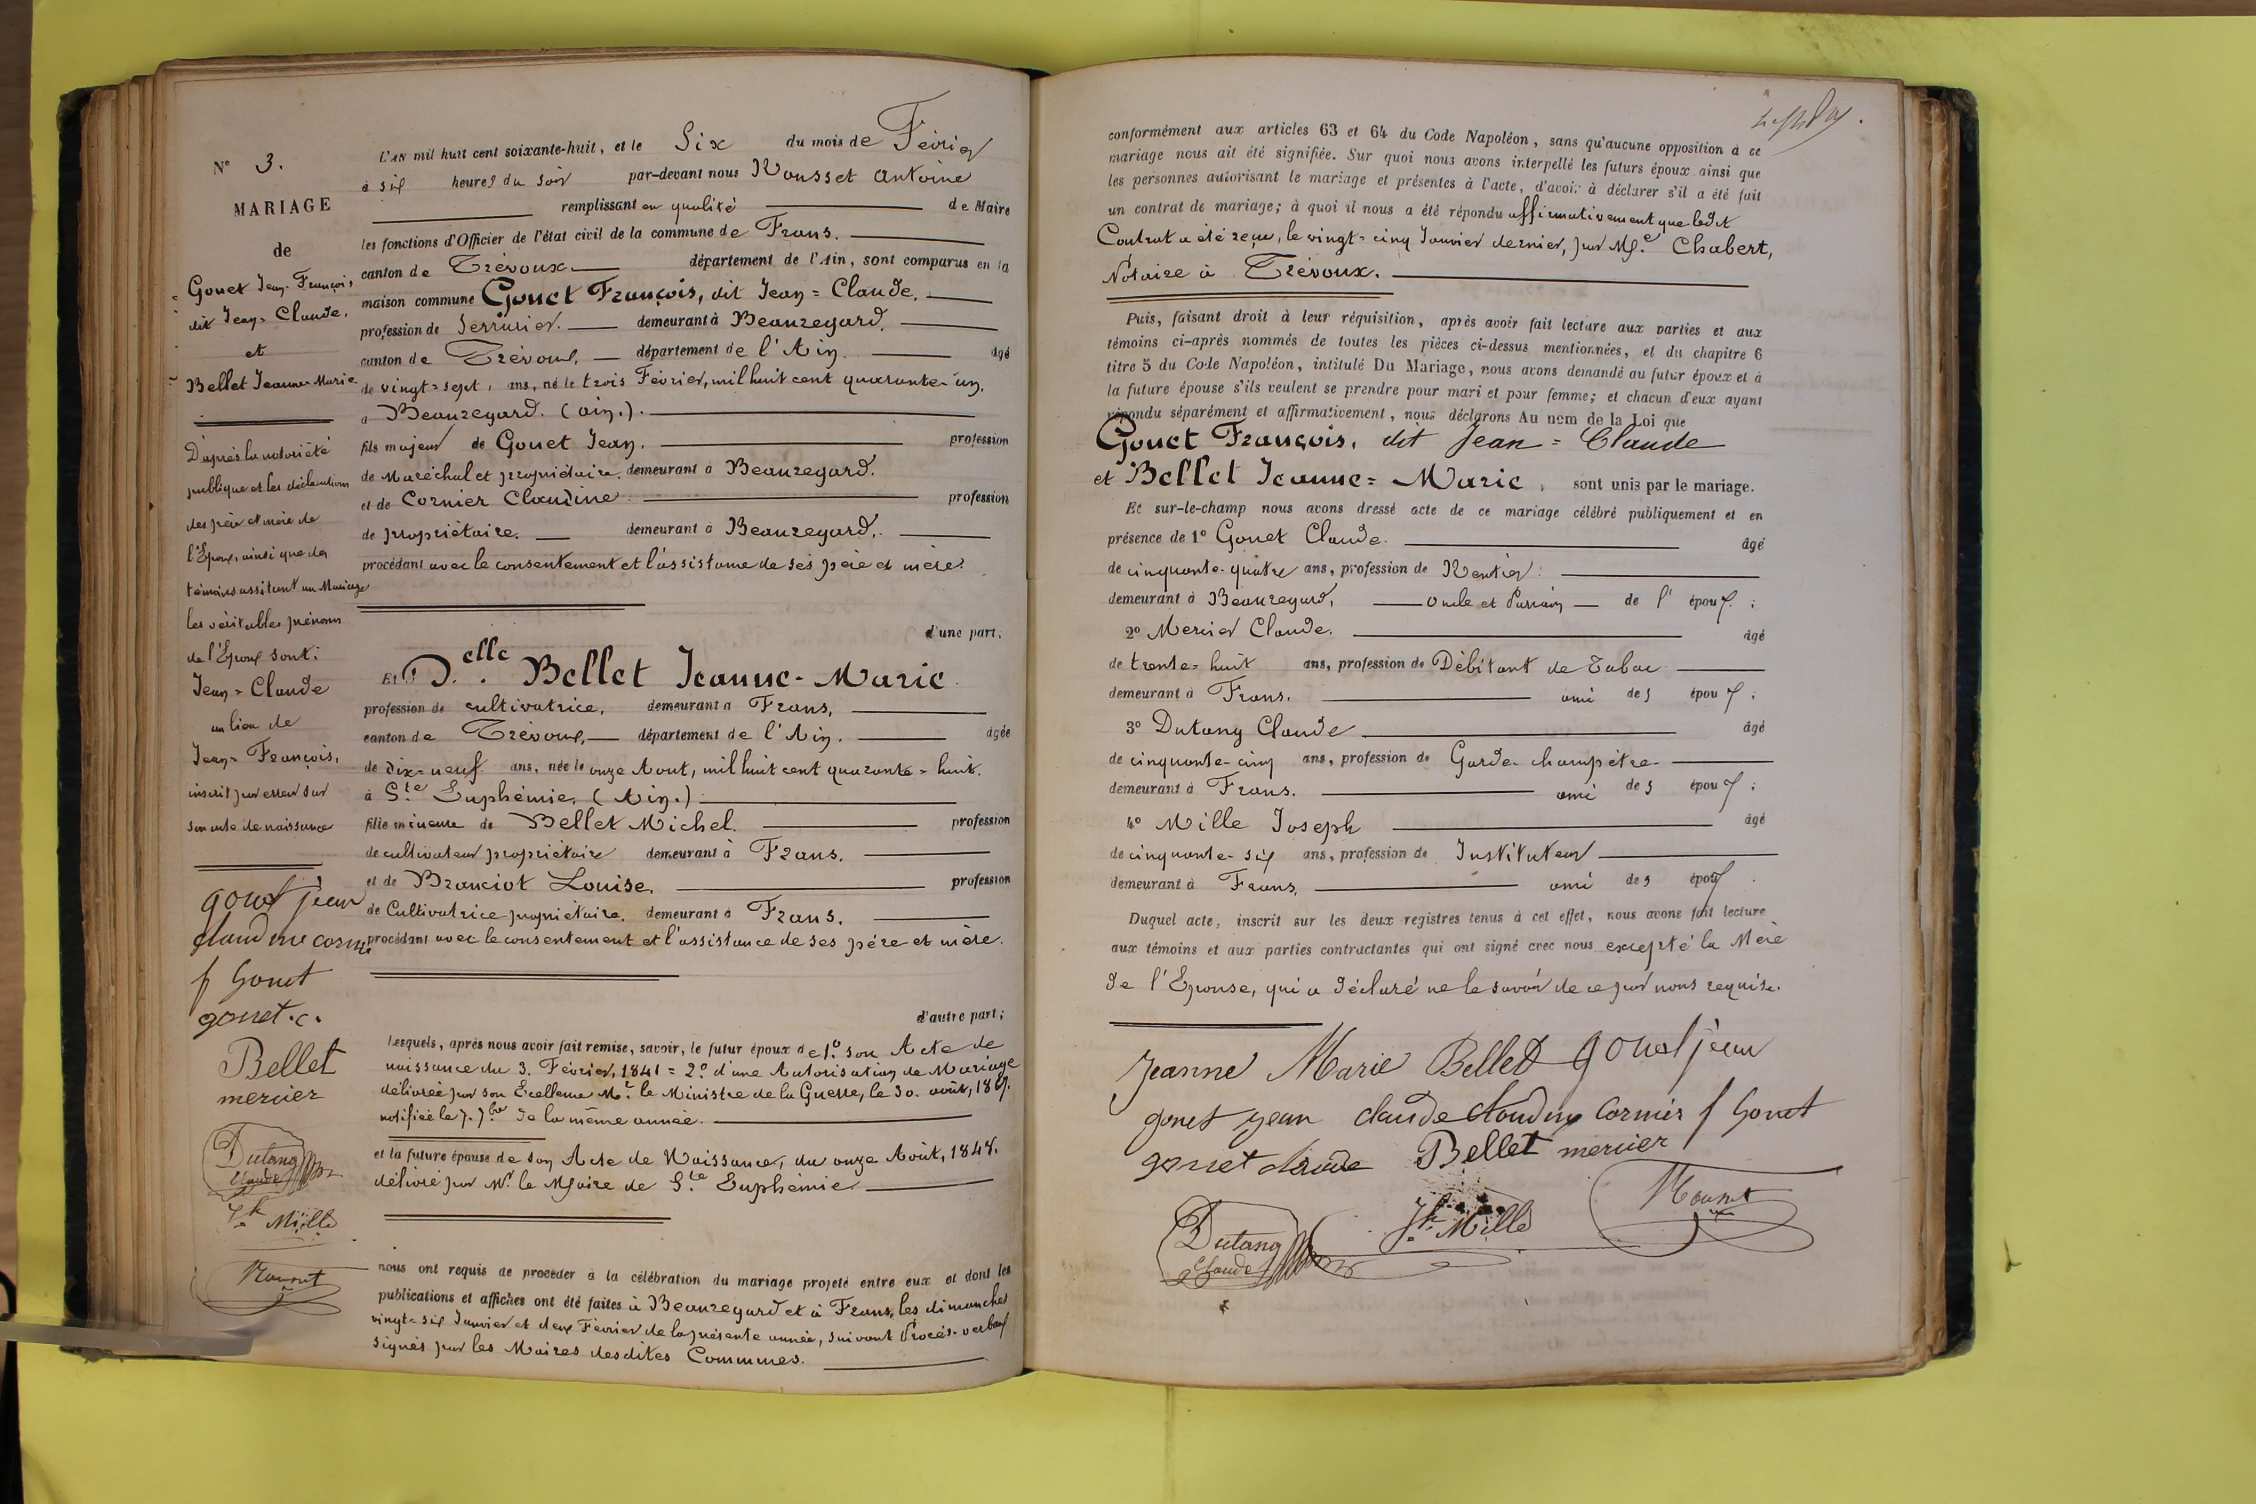 N° 3.
MARIAGE
de
Gonet Jean-François,
dit Jean-Claude.
et
Bellet Jeanne-Marie
D'après la notoriété
publique et les déclarations
des père et mère de
l'Epoux, ainsi que des
témoins assistant au Mariage
les véritables prénoms
de l'Epoux sont:
Jean-Claude
au lieu de
Jean-François,
inscrit par erreur sur
son acte de naissance
gonet jean
claudine cornier
f Gonet
gonet. c.
Bellet
mercier
Dutang
Claude
Jh Mille
Rousset
L'AN mil huit cent soixante-huit, et le Six du mois de Février
à six heures du soir par-devant nous Rousset Antoine
remplissant en qualité de Maire
les fonctions d'Officier de l'état civil de la commune de Frans.
canton de Trévoux département de l'Ain, sont comparus en la
maison commune Gonet François, dit Jean=Claude.
profession de Serrurier. demeurant à Beauregard.
canton de Trévoux. département de l'Ain. âgé
de vingt=sept, ans, né le trois Février, mil huit cent quarante-un,
à Beauregard. (Ain.).
fils majeur de Gonet Jean. profession
de Maréchal et propriétaire. demeurant à Beauregard.
et de Cornier Claudine profession
de propriétaire. demeurant à Beauregard.
procédant avec le consentement et l'assistance de ses père et mère.
d'une part;
Et D.elle Bellet Jeanne-Marie
profession de cultivatrice. demeurant à Frans.
canton de Trévoux. département de l'Ain. âgée
de dix=neuf ans, née le onze Aout, mil huit cent quarante=huit.
à Ste Euphémie, (Ain.)
fille mineure de Bellet Michel. profession
de cultivateur propriétaire demeurant à Frans.
et de Branciot Louise. profession
de Cultivatrice propriétaire. demeurant à Frans.
procédant avec le consentement et l'assistance de ses père et mère.
d'autre part;
Lesquels, après nous avoir fait remise, savoir, le futur époux de 1° son Acte de
naissance du 3. Février, 1841 = 2° d'une Autorisation de Mariage
délivrée par son Excellence Mr le Ministre de la Guerre, le 30. août, 1867.
notifiée le 7. 7bre de la même année.
et la future épouse de son Acte de Naissance, du onze Août, 1848.
délivré par Mr le Maire de Ste Euphémie
nous ont requis de procéder à la célébration du mariage projeté entre eux et dont les
publications et affiches ont été faites à Beauregard et à Frans, les dimanches
vingt=six Janvier et deux Février de la présente année, suivant Procès-verbaux
signés par les Maires desdites Communes.
conformément aux articles 63 et 64 du Code Napoléon, sans qu'aucune opposition à ce
mariage nous ait été signifiée. Sur quoi nous avons interpellé les futurs époux ainsi que
les personnes autorisant le mariage et présentes à l'acte, d'avoir à déclarer s'il a été fait
un contrat de mariage; à quoi il nous a été répondu affirmativement que ledit
Contrat a été reçu, le vingt=cinq Janvier dernier, par Me Chabert,
Notaire à Trévoux.
Puis, faisant droit à leur réquisition, après avoir fait lecture aux parties et aux
témoins ci-après nommés de toutes les pièces ci-dessus mentionnées, et du chapitre 6
titre 5 du Code Napoléon, intitulé Du Mariage, nous avons demandé au futur époux et à
la future épouse s'ils veulent se prendre pour mari et pour femme; et chacun d'eux ayant
répondu séparément et affirmativement, nous déclarons Au nom de la Loi que
Gonet François, dit Jean=Claude
et Bellet Jeanne=Marie, sont unis par le mariage.
Et sur-le-champ nous avons dressé acte de ce mariage célébré publiquement et en
présence de 1° Gonet Claude. âgé
de cinquante-quatre ans, profession de Rentier.
demeurant à Beauregard, oncle et Parrain de l' époux;
2° Mercier Claude. âgé
de trente=huit ans, profession de Débitant de Tabac
demeurant à Frans. ami des époux;
3° Dutang Claude âgé
de cinquante-cinq ans, profession de Garde-champêtre
demeurant à Frans. ami des époux;
4° Mille Joseph âgé
de cinquante-six ans, profession de Instituteur
demeurant à Frans. ami des époux.
Duquel acte, inscrit sur les deux registres tenus à cet effet, nous avons fait lecture
aux témoins et aux parties contractantes qui ont signé avec nous excepté la Mère
de l'Epouse, qui a déclaré ne le savoir de ce par nous requise.
Jeanne Marie Bellet gonet jean
gonet jean claude claudine Cornier f Gonet
gonet claude Bellet mercier
Dutang
Claude
Jh Mille
Rousset